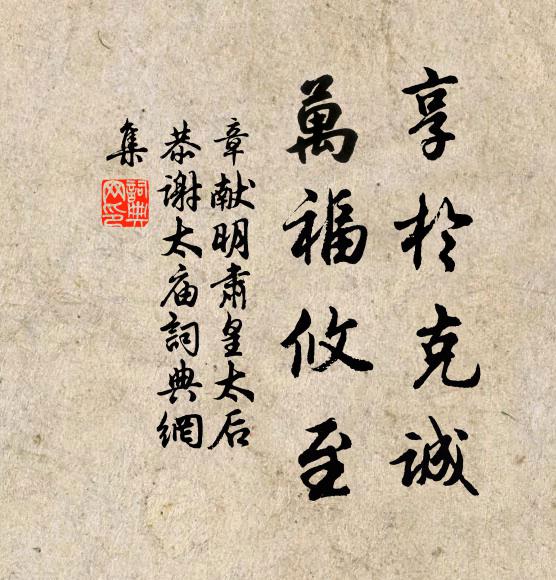 享於克誠
萬福攸至
章献明肅皇太后
恭谢太庙詞典網
集
詞典
网印